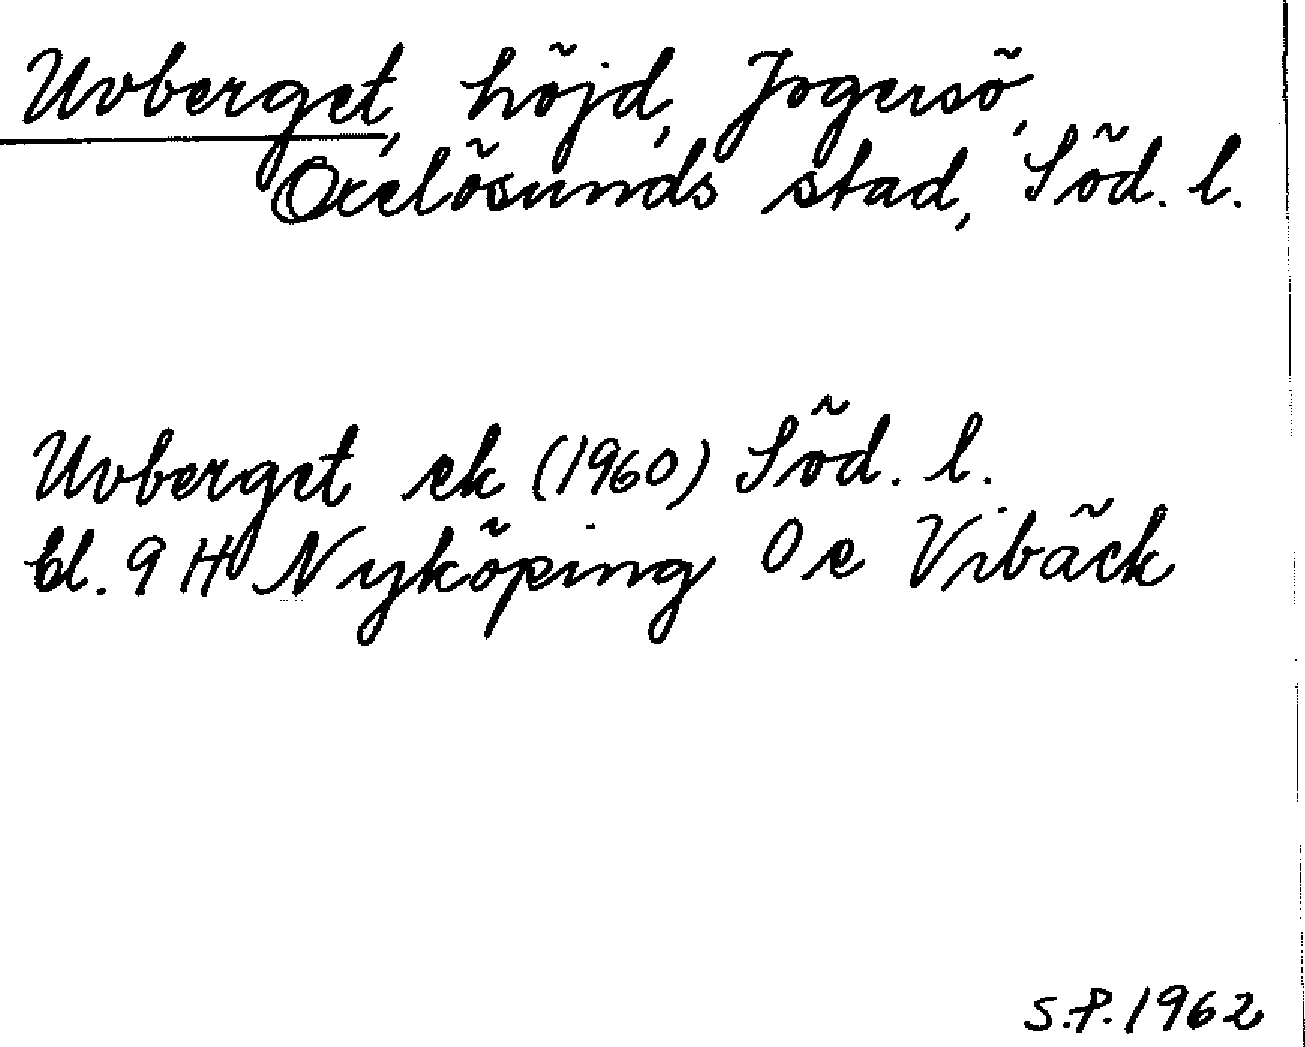 Uvberget, höjd, Jogersö,
Oxelösunds stad, Söd. l.
Uvberget ek (1960) Söd. l.
bl. 9 H Nyköping Oe Vibäck
S.P. 1962